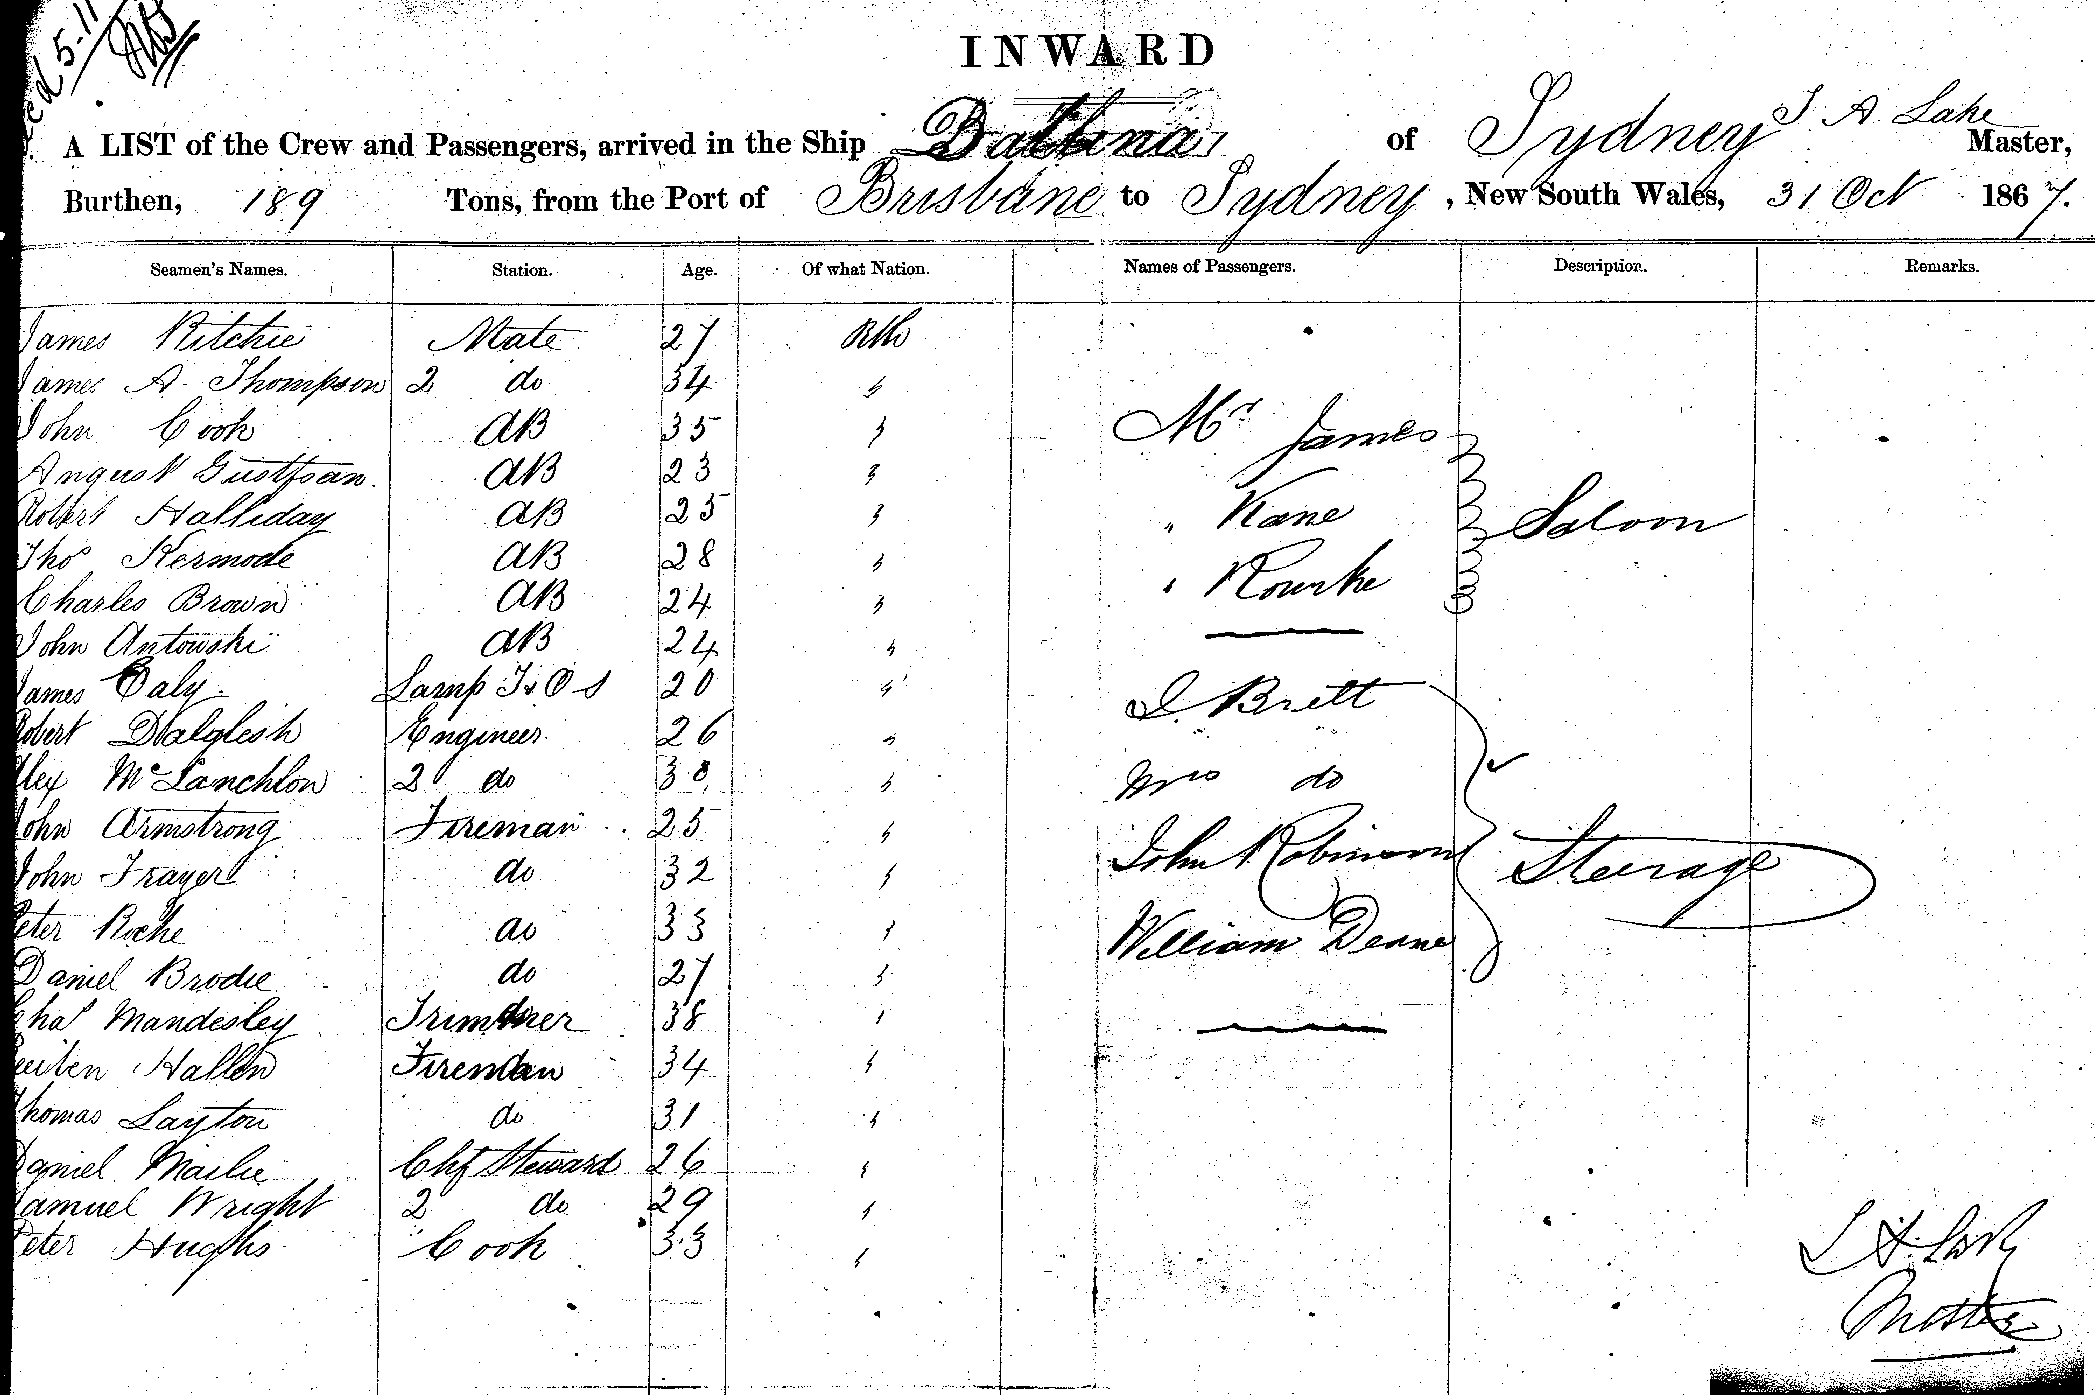 5-11
INWARD
A LIST of the Crew and Passengers, arrived in the Ship Ballina of Sydney J A Lake Master,
Burthen, 189 Tons, from the Port of Brisbane to Sydney, New South Wales, 31 Oct 1867.
Seamen's Names. Station. Age. Of what Nation. Names of Passengers. Description. Remarks.
James Ritchie Mate 27
James A. Thompson 2 do 34 "
John Cook AB 35 " Mr James
August Gustfsan AB 23 "
Robert Halliday AB 25 " " Kane Saloon
Thos Kermode AB 28 "
Charles Brown AB 24 " " Rourke
John Antowski AB 24 "
James Daly Lamp T & O S 20 " J. Brett
Robert Dalglesh Engineer 26 "
Alex McLanchlon 2 do 30 " Mrs do
John Armstrong Fireman 25 " John Robinson Steerage
John Frayer do 32 "
Peter Roche do 33 " William Deane
Daniel Brodie do 27 "
Chas Mandesley Trimmer 38 "
Hallen Fireman 34 "
Thomas Layton do 31 "
Daniel Mailie Chf Steward 26 "
Samuel Wright 2 do 29 "
Peter Hughs Cook 33 "
J A Lake
Master